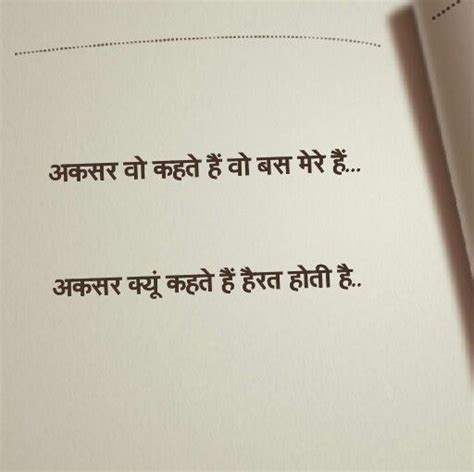 अकसर वो कहते हैं वो बस मेरे हैं...
अकसर क्यूं कहते हैं हैरत होती है..